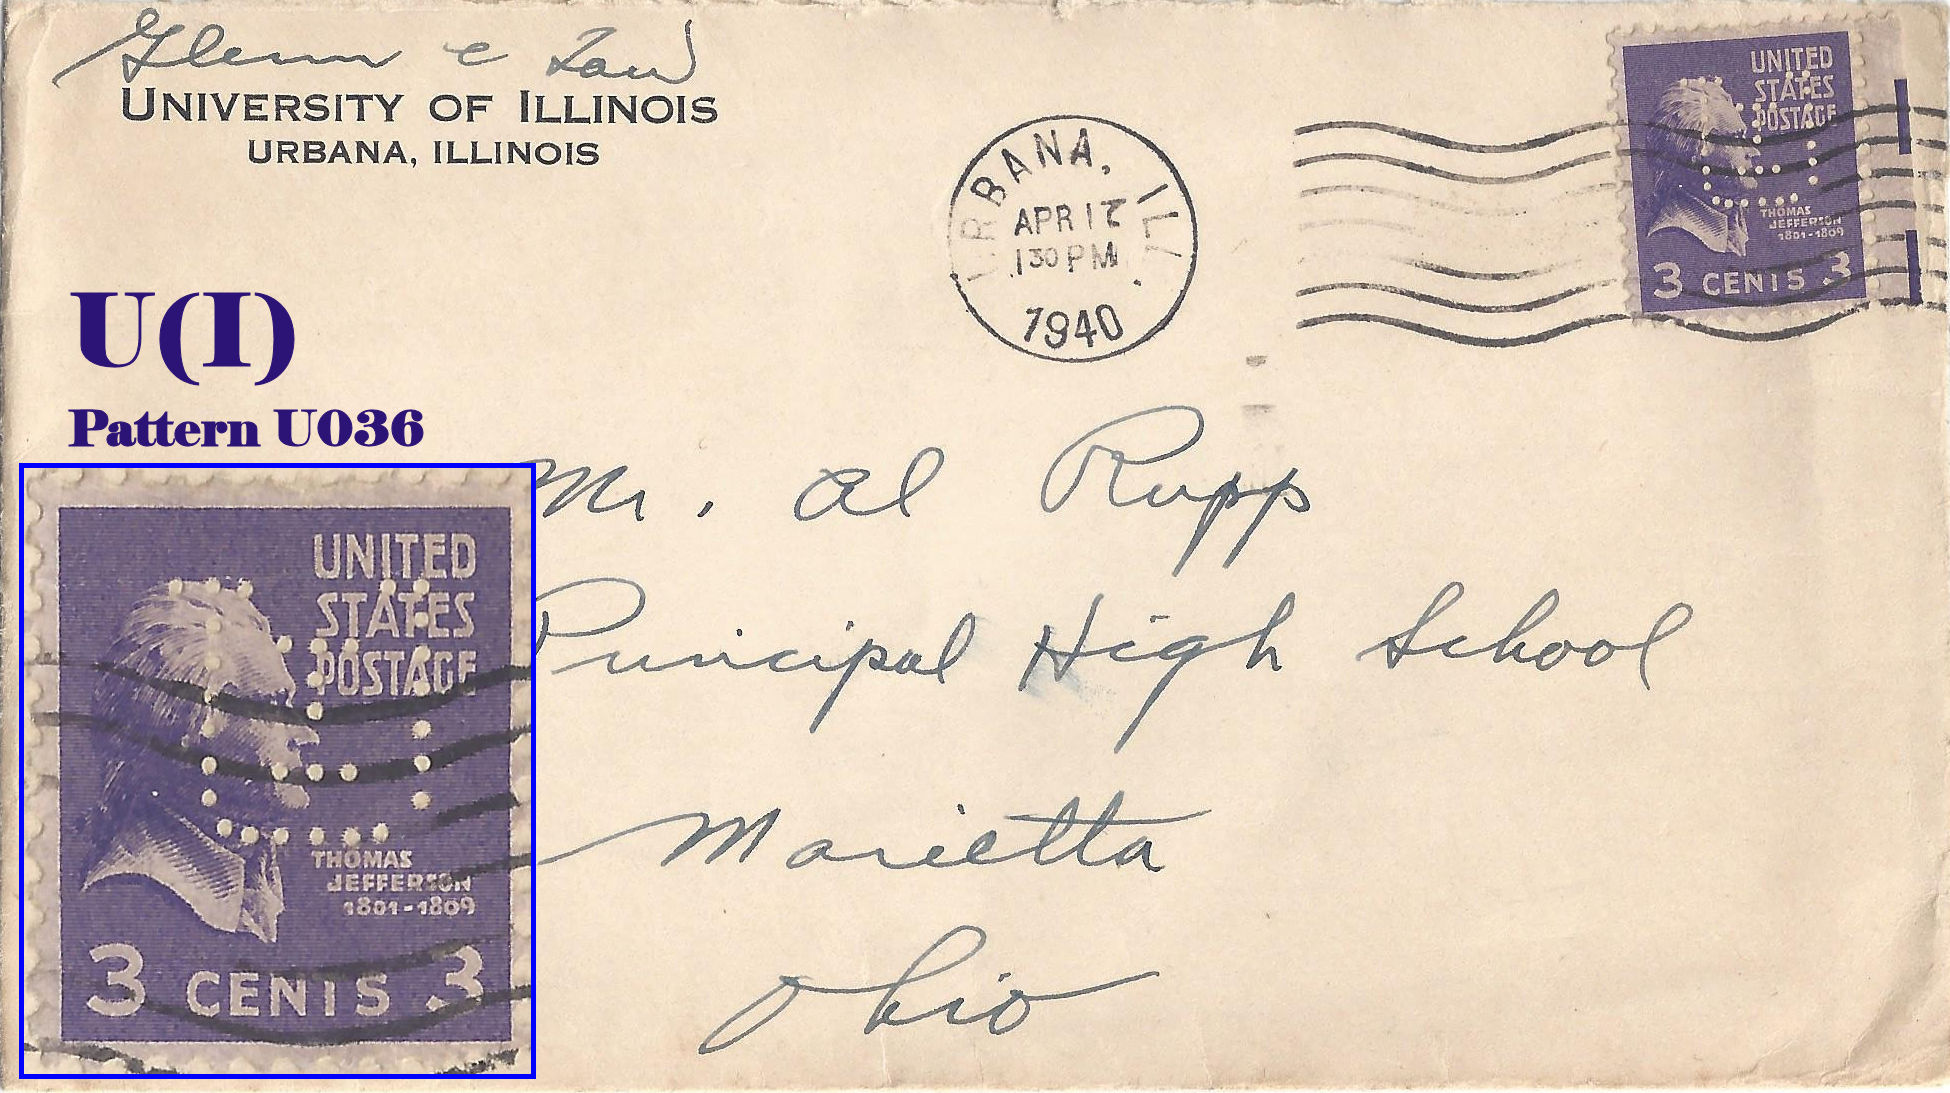 Glenn e Law
UNIVERSITY OF ILLINOIS
URBANA, ILLINOIS
URBANA, ILL.
APR 17
130 PM
1940
UNITED
STATES
POSTAGE
THOMAS
JEFFERSON
1801-1809
3 CENTS 3
U(I)
Pattern U036
Mr. Al Rupp
Principal High School
Marietta
Ohio
UNITED
STATES
POSTAGE
THOMAS
JEFFERSON
1801-1809
3 CENTS 3